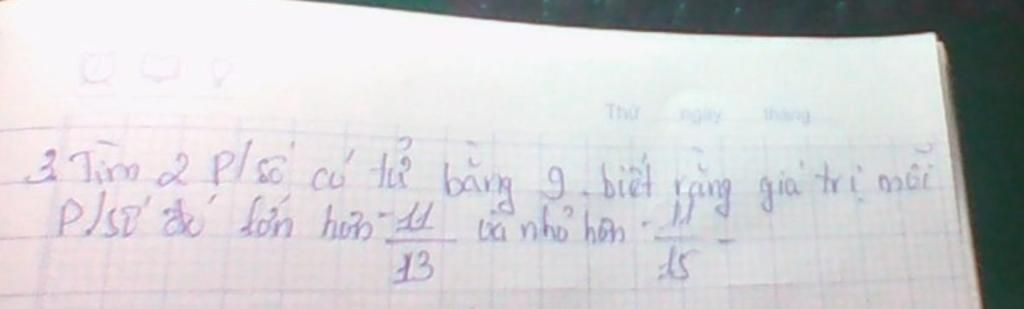 Thứ ngày tháng
3. Tìm 2 P/số có tử bằng 9. biết rằng giá trị mỗi
P/số đó lớn hơn -11/13 và nhỏ hơn -11/15